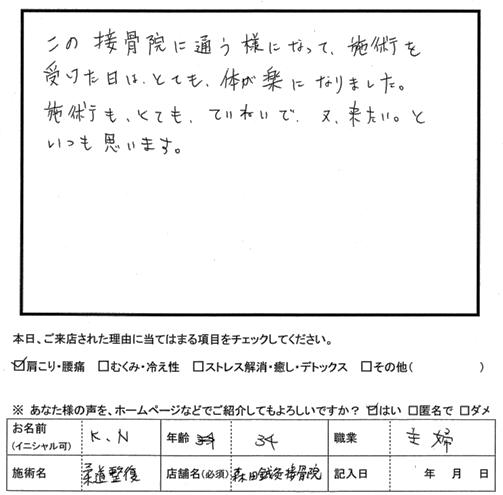 この接骨院に通う様になって、施術を
受けた日は、とても、体が楽になりました。
施術も、とても、ていねいで、又、来たい。と
いつも思います。
本日、ご来店された理由に当てはまる項目をチェックしてください。
☑肩こり・腰痛 □むくみ・冷え性 □ストレス解消・癒し・デトックス □その他( )
※ あなた様の声を、ホームページなどでご紹介してもよろしいですか? ☑はい □匿名で □ダメ
お名前 (イニシャル可) K.N 年齢 34 職業 主婦
施術名 柔道整復 店舗名(必須) 森田鍼灸接骨院 記入日 年 月 日